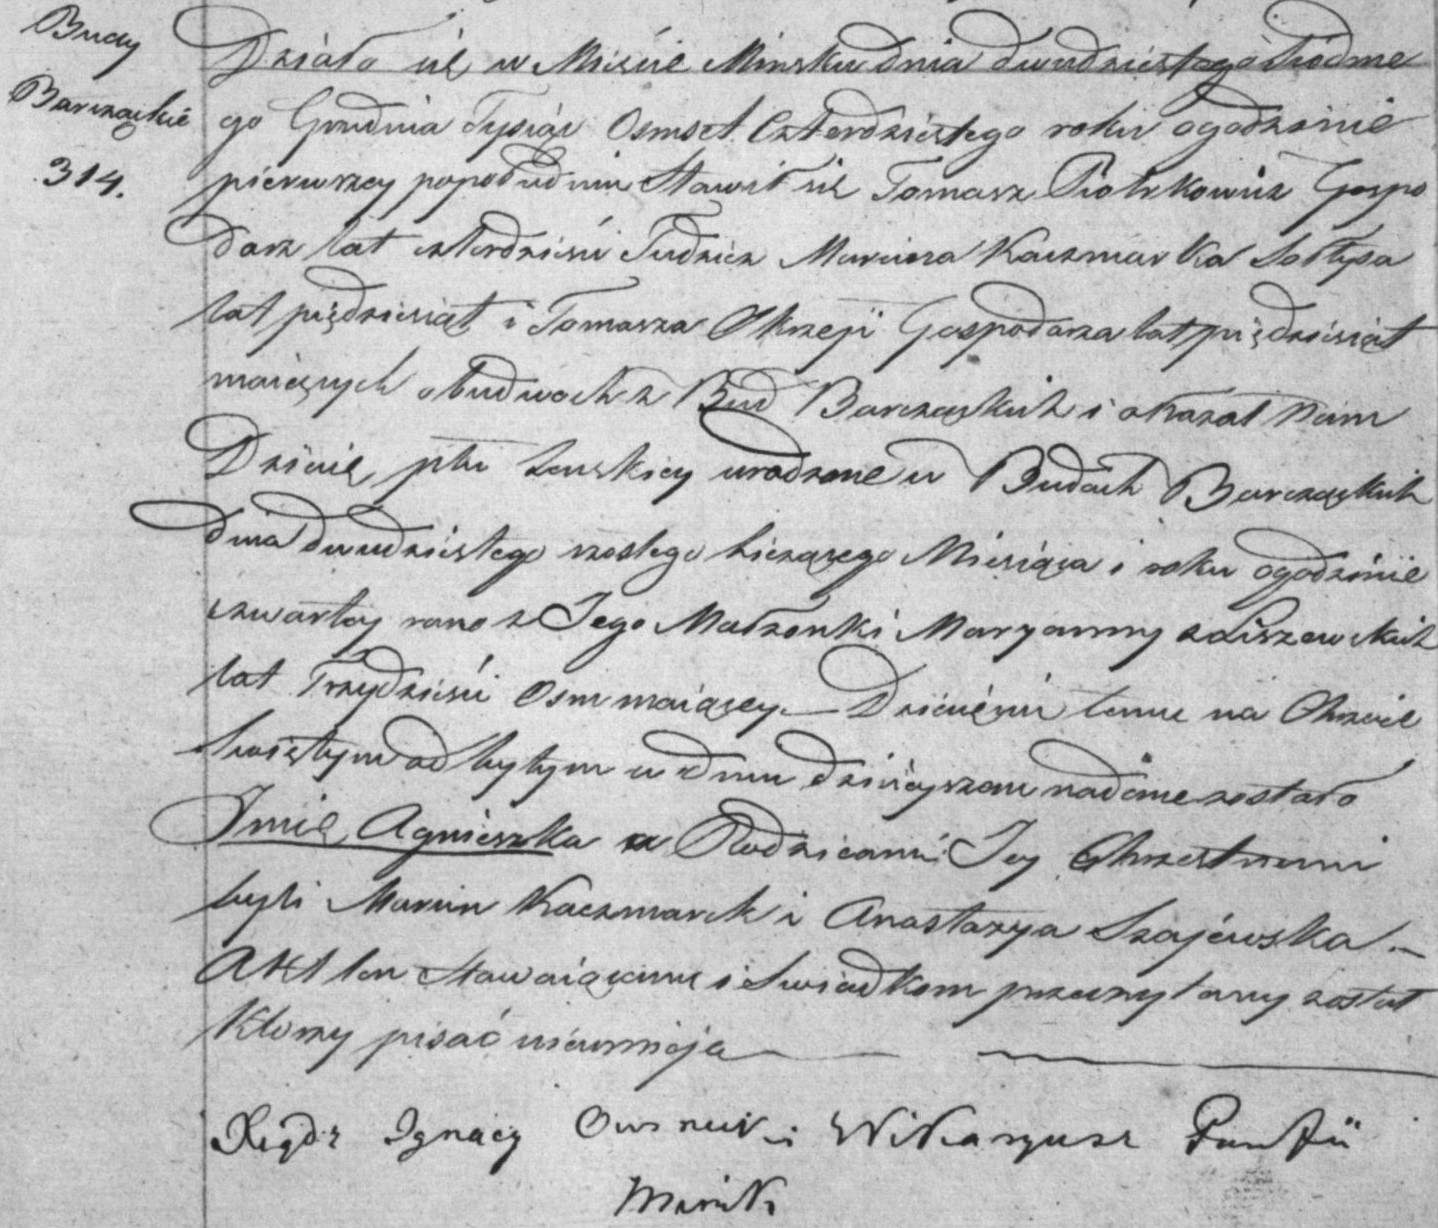 Budy
Barcząckie
314.
Działo się w Mieście Minsku dnia dwudziestego siodme
go Grudnia Tysiąc Osmset Czterdziestego roku ogodzinie
pierwszey popołudniu Stawił się Tomasz Piotrkowicz Gospo
darz lat czterdzieści Tudzież Marcina Kaczmarka Sołtysa
lat piędziesiąt i Tomasza Okrzeji Gospodarza lat piędziesiąt
maiących obudwoch z Bud Barcząckich i okazał Nam
Dziecię płci żenskiey urodzone w Budach Barcząckich
dnia dwudziestego szostego bieżącego Miesiąca i roku ogodzinie
czwartey rano z Jego Małżonki Maryanny z Liszewskich
lat Trzydzieści Osm maiącey — Dziecięciu temu na Chrzcie
Swiętym odbytym w dniu dzisiejszem nadane zostało
Imie Agnieszka a Rodzicami Jey Chrzestnemi
byli Marcin Kaczmarek i Anastazya Szajewska —
Akt ten Stawaiącemu i Swiadkom przeczytany został
Ktorzy pisać nieumieja
Xiądz Ignacy Wikaryusz Parafii
Minski